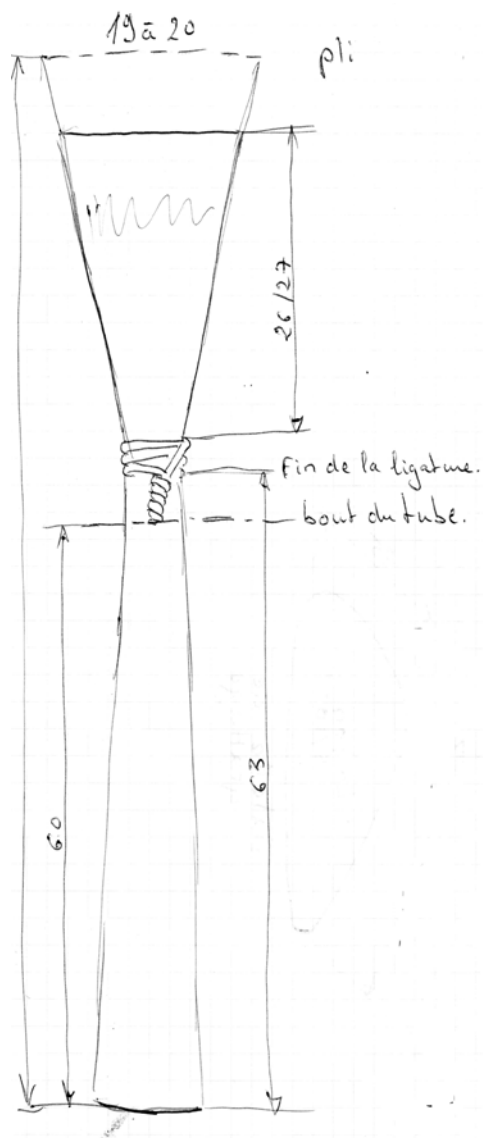 19 à 20
pli
26/27
Fin de la ligature.
bout du tube.
63
60